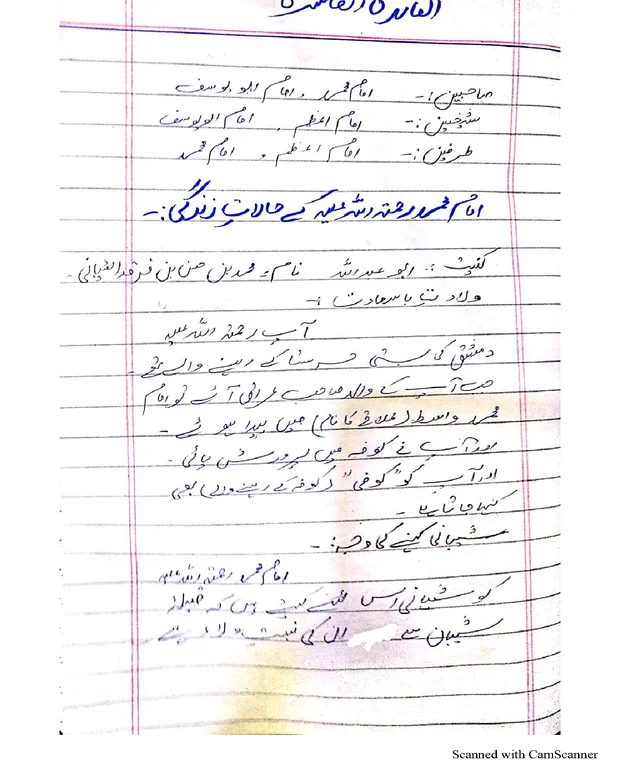 صاحبین :- امام محمد ، امام ابو یوسف
شیخین :- امام اعظم ، امام ابو یوسف
طرفین :- امام اعظم ، امام محمد
امام محمد رحمتہ اللہ علیہ کے حالاتِ زندگی :-
کنیت :- ابو عبداللہ نام :- محمد بن حسن بن فرقد الشیبانی -
ولادت باسعادت :-
آپ رحمتہ اللہ علیہ
دمشق کی بستی حرستا کے رہنے والے تھے -
جب آپ کے والد صاحب عراق آئے تو امام
محمد واسط (علاقے کا نام) میں پیدا ہوئے -
اور آپ نے کوفہ میں پرورش پائی -
اور آپ کو "کوفی" (کوفہ کے رہنے والے) بھی
کہا جاتا ہے -
شیبانی کہنے کی وجہ :-
امام محمد رحمتہ اللہ علیہ
کو شیبانی اس لئے کہتے ہیں کہ قبیلہ
شیبان سے ان کی نسبت ولاء ہے
Scanned with CamScanner